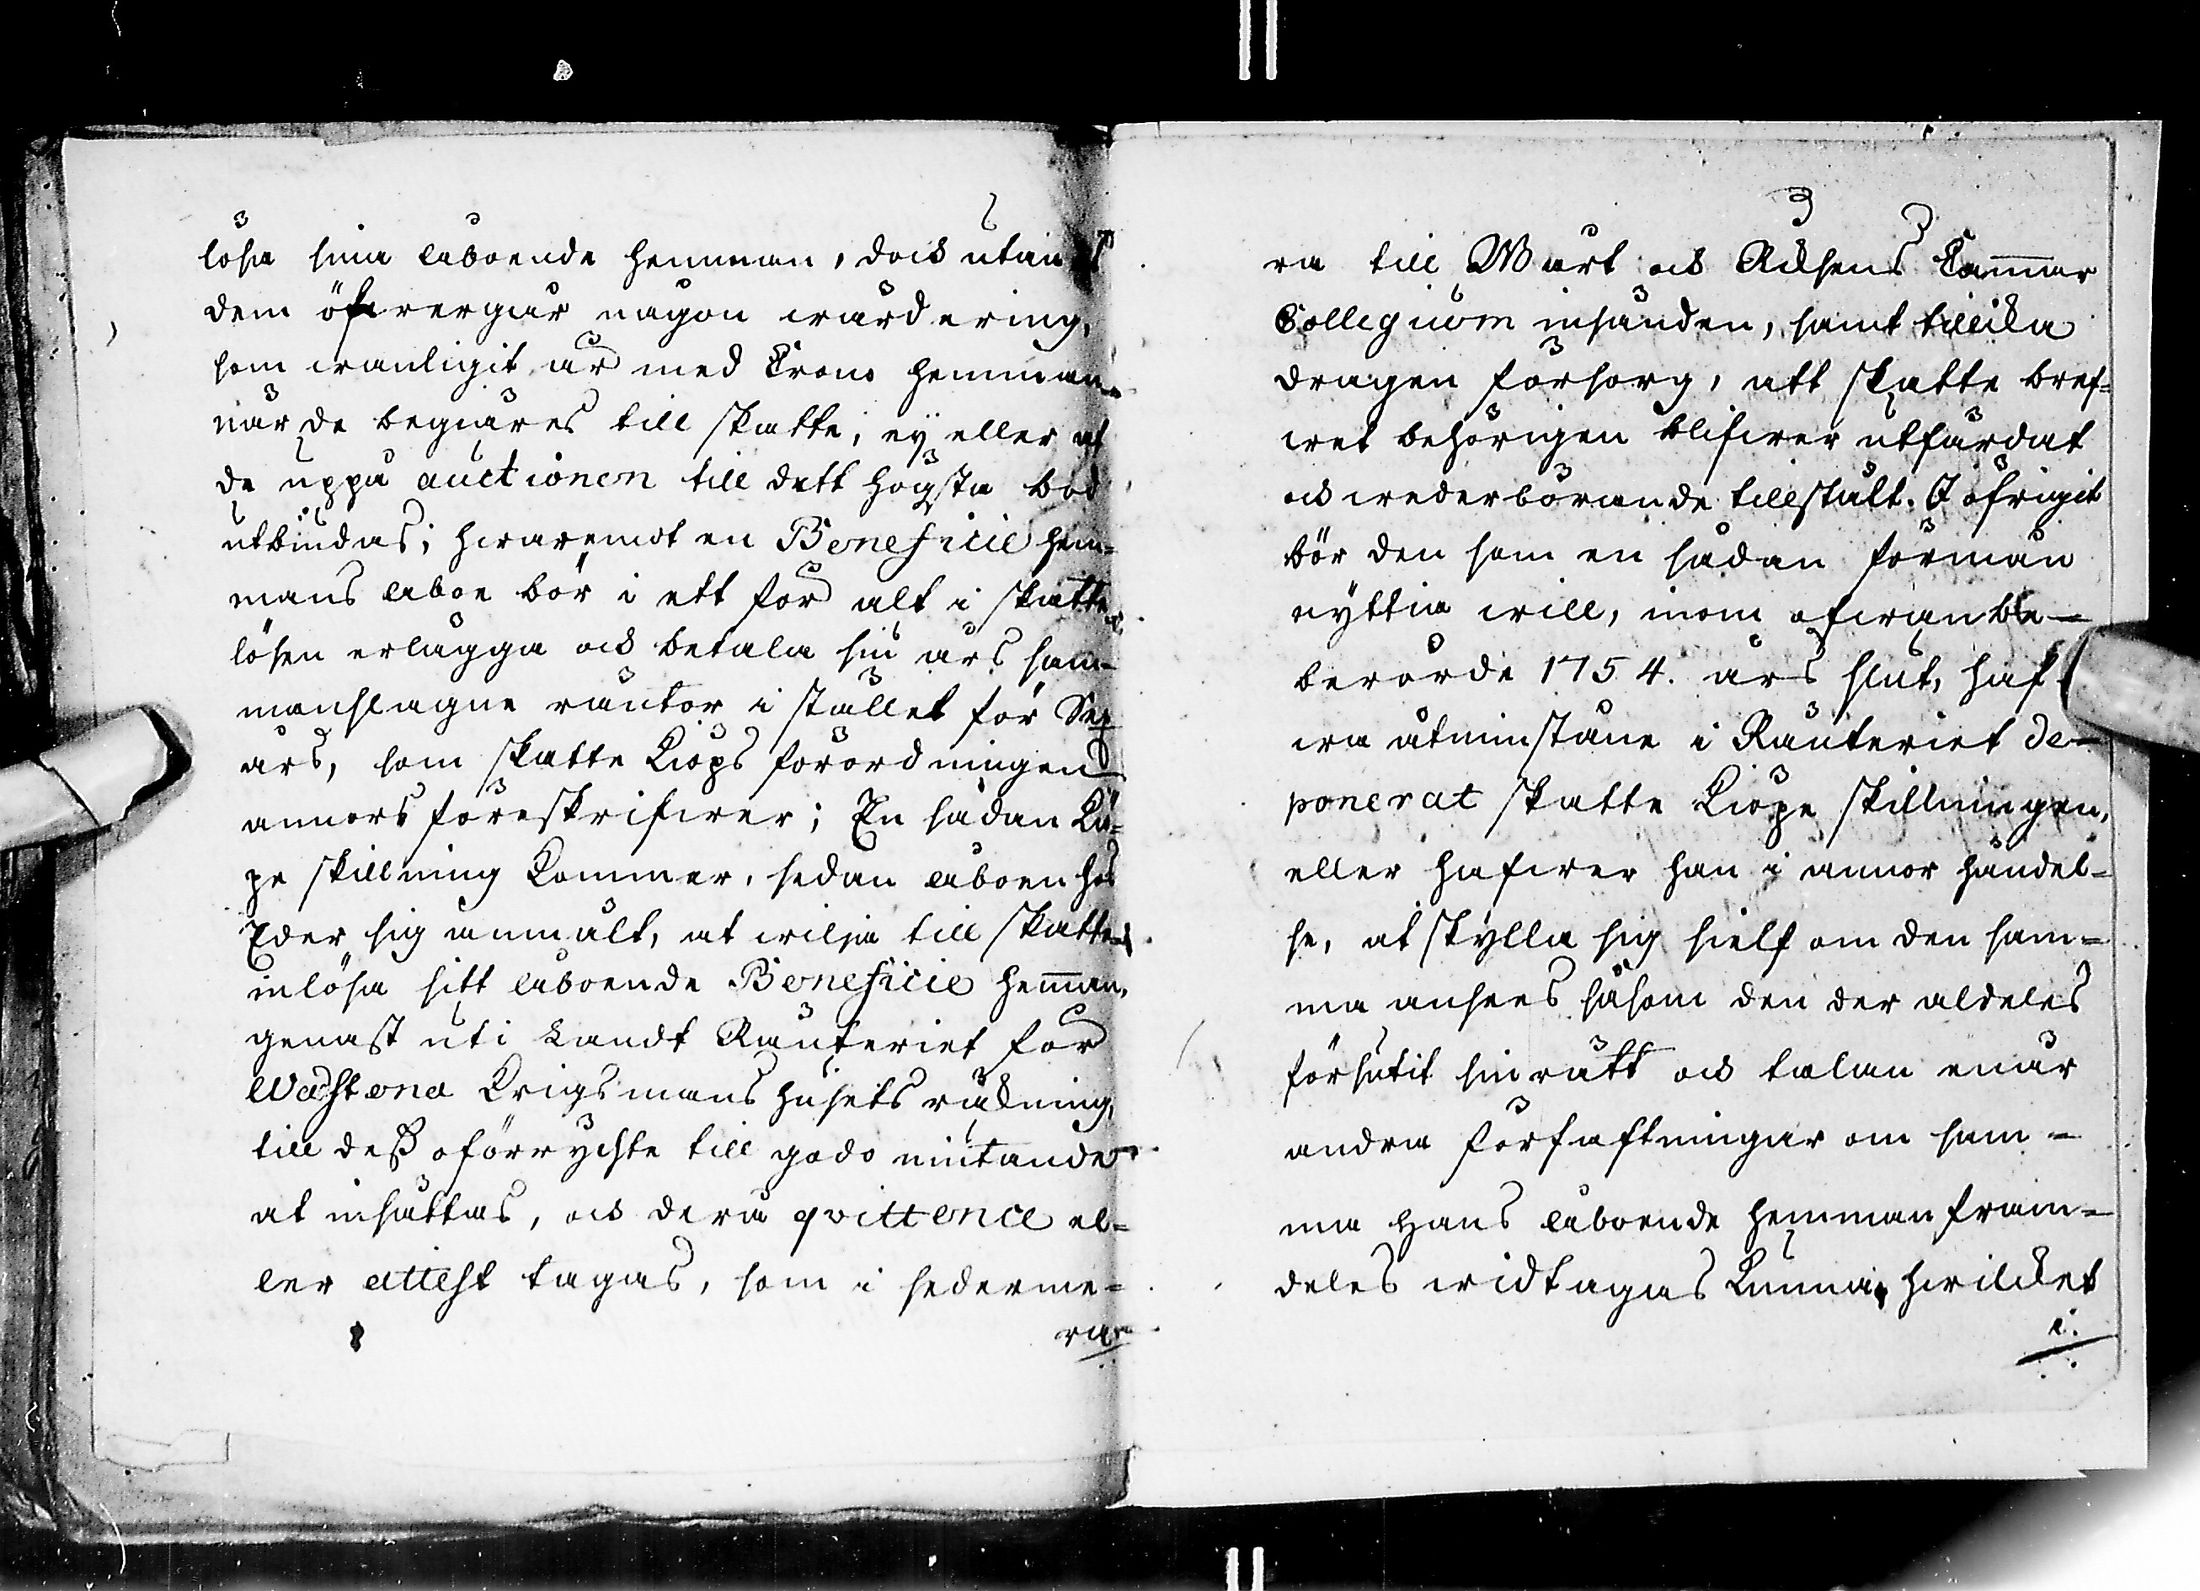 lösa sina åboende hemman, dock utan
dem öfwergår någon wärdering,
som wanligit är med Crono hemman
när de begiäres till skatte, eÿ eller at
de uppå auctionen till dett högsta bod
utbiudas; hwaremot en Beneficie hem=
mans åboe bör i ett för alt i skatte
lösen erlägga och betala siu års sam-
manslagne räntor i stället för Sex
års, som skatte Kiöps förordningen
annors föreskrifwer; En sådan Kiö=
pe skillning Kommer, sedan åboen hos
Eder sig anmält, at wilja till skatte
inlösa sitt åboende Beneficie hemman,
genast uti Landt Ränteriet för
Wadstena Krigsmans husets räkning,
till dess oförryckte till godo niutande
at insättas, och derå qvittence el=
ler attest tagas, som i sederme=
ra
3
ra till Wårt och Riksens Cammar
Collegium insänden, samt tillika
dragen försorg, att skatte bref=
wet behörigen blifwer utfärdat
och wederbörande tillstält. I öfrigit
bör den som en sådan förmån
nÿttia will, inom ofwanbe-
berörde 1754. års slut, haf
wa åtminstone i Ränteriet de-
ponerat skatte Kiöpe skillningen,
eller hafwer han i annor händel=
se, at skÿlla sig sielf om den sam=
ma ansees såsom den der aldeles
försutit sin rätt och talan enär
andra författningar om sam=
ma hans åboende hemman fram=
deles widtagas kunna, hwilcket
i.